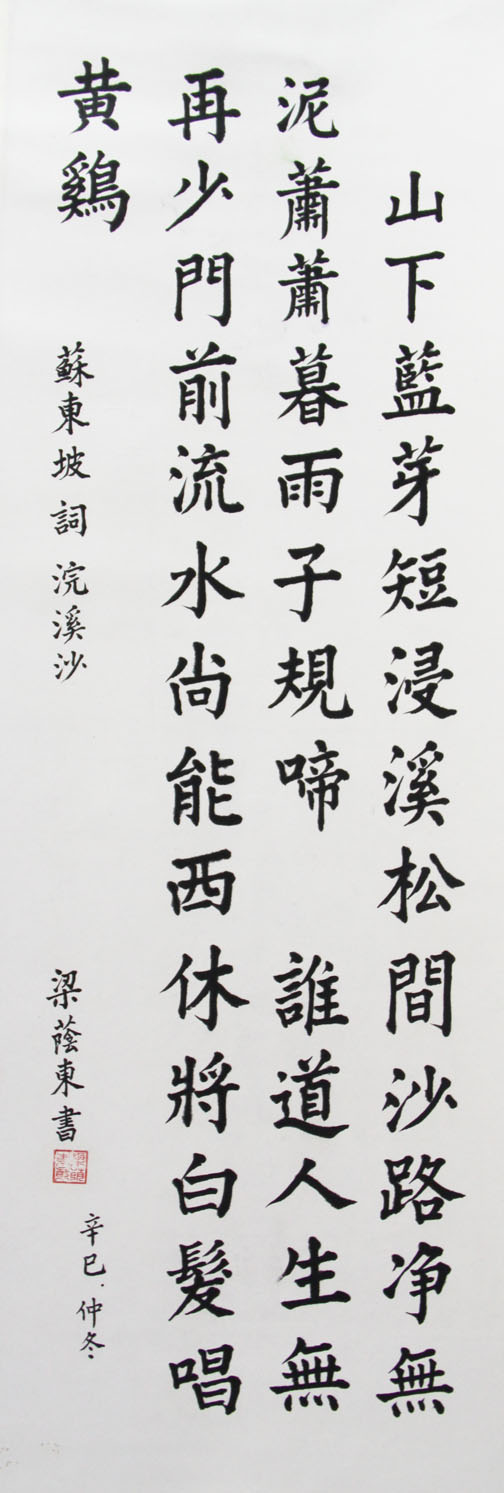 山下藍芽短浸溪松間沙路净無
泥蕭蕭暮雨子規啼 誰道人生無
再少門前流水尚能西休將白髮唱
黄鷄
蘇東坡詞浣溪沙
梁蔭東書
辛巳．仲冬